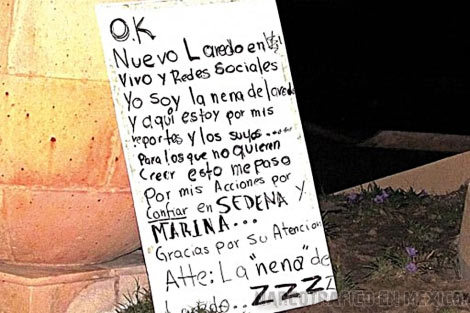 O.K
Nuevo Laredo en
Vivo y Redes Sociales
Yo soy la nena de laredo
y aquí estoy por mis
reportes y los suyos.....
Para los que no quieren
creer esto me paso
Por mis Acciones por
Confiar en SEDENA y
MARINA...
Gracias por Su Atencion
Atte: La "nena" de
Laredo... ZZZZ
NARCOTRAFICO EN MEXICO